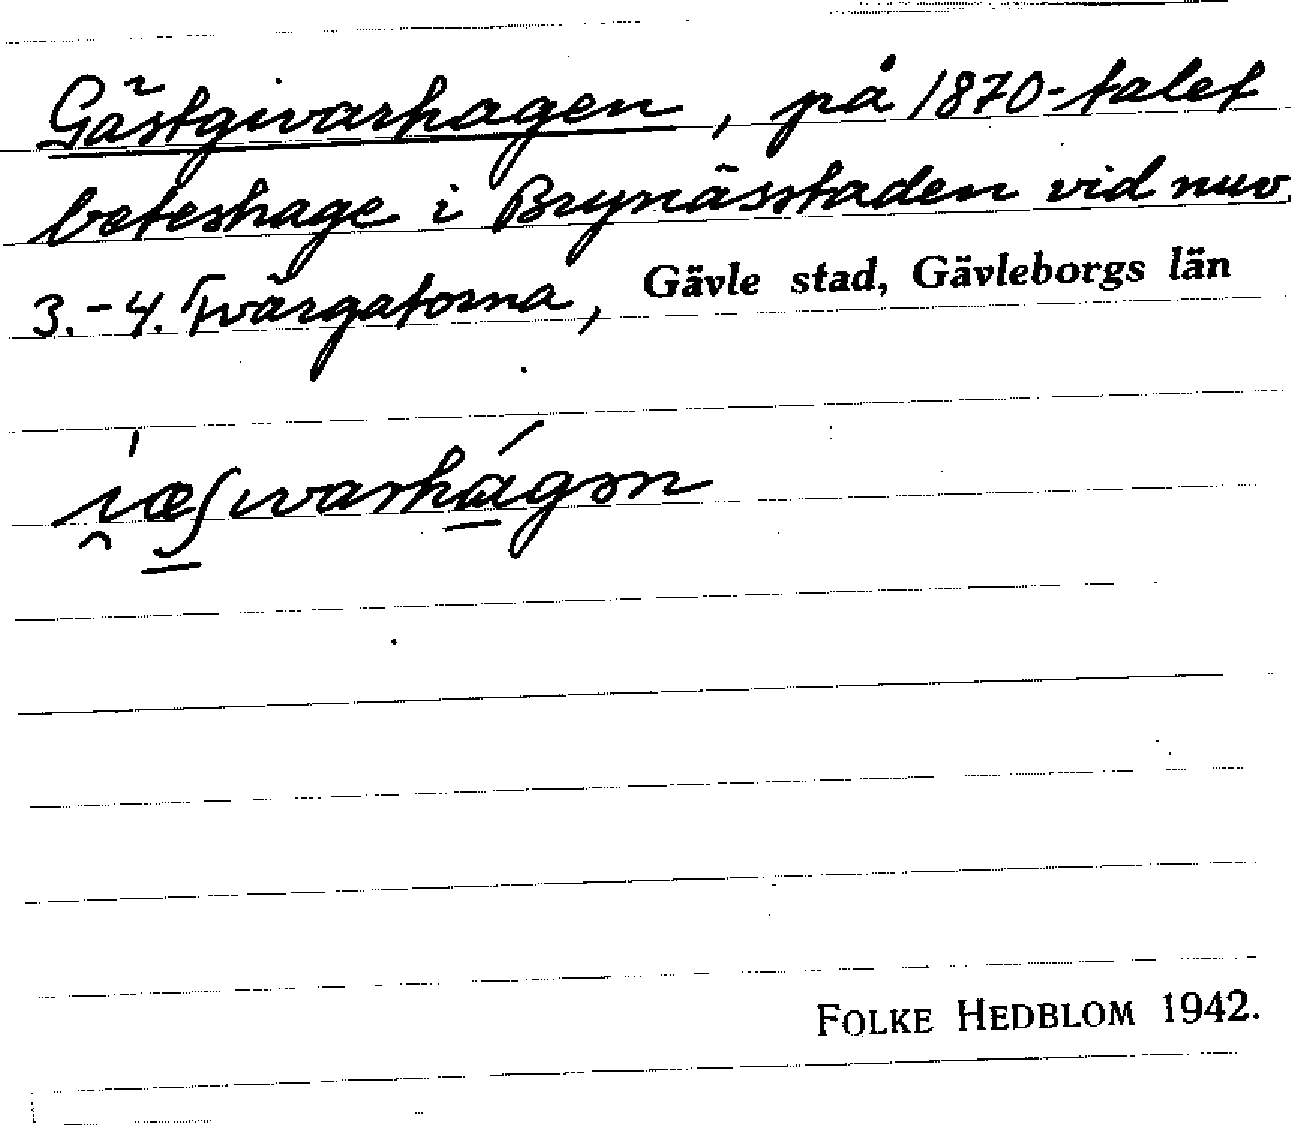 Gästgivarhagen, på 1870-talet
beteshage i Brynässtaden vid nuv.
3.-4. Tvärgatorna, Gävle stad, Gävleborgs län
FOLKE HEDBLOM 1942.